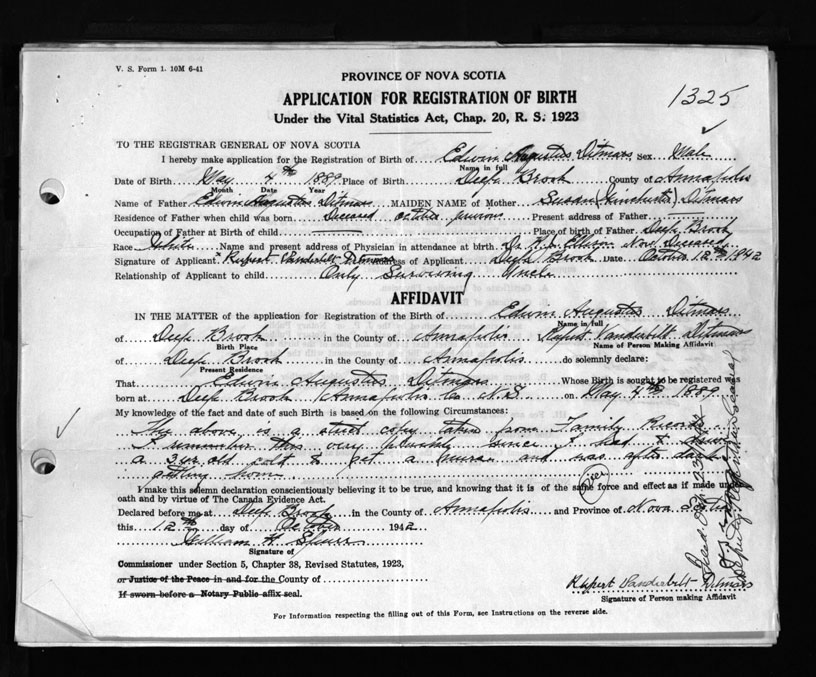 V. S. Form 1. 10M 6-41
PROVINCE OF NOVA SCOTIA
APPLICATION FOR REGISTRATION OF BIRTH
1325
Under the Vital Statistics Act, Chap. 20, R. S. 1923
TO THE REGISTRAR GENERAL OF NOVA SCOTIA
I hereby make application for the Registration of Birth of Edwin Augustus Ditmars Sex Male
Name in full
Date of Birth May 4th 1889 Place of Birth Deep Brook County of Annapolis
Month Date Year
Name of Father Edwin Augustus Ditmars MAIDEN NAME of Mother Susan (Winchester) Ditmars
Residence of Father when child was born Deceased October previous Present address of Father
Occupation of Father at Birth of child Place of birth of Father Deep Brook
Race White Name and present address of Physician in attendance at birth. Dr. Now Deceased
Signature of Applicant x Rupert Vanderbilt Ditmars Address of Applicant Deep Brook Date October 12th 1942
Relationship of Applicant to child Only Surviving Uncle
AFFIDAVIT
IN THE MATTER of the application for Registration of the Birth of Edwin Augustus Ditmars
Name in full
of Deep Brook in the County of Annapolis Rupert Vanderbilt Ditmars
Birth Place Name of Person Making Affidavit
of Deep Brook in the County of Annapolis do solemnly declare:
Present Residence
That Edwin Augustus Ditmars Whose Birth is sought to be registered was
born at Deep Brook Annapolis Co N.S. on May 4th 1889
My knowledge of the fact and date of such Birth is based on the following Circumstances:
The above is a strict copy taken from Family Records
I remember this very plainly since I had to drive
a 3 yr old colt to get a nurse and was after dark
getting home
I make this solemn declaration conscientiously believing it to be true, and knowing that it is of the same force and effect as if made under
oath and by virtue of The Canada Evidence Act.
Declared before me at Deep Brook in the County of Annapolis and Province of Nova Scotia
this 12th day of October 1942
William H. Spurr
Signature of
Commissioner under Section 5, Chapter 38, Revised Statutes, 1923,
or Justice of the Peace in and for the County of
If sworn before a Notary Public affix seal.
Rupert Vanderbilt Ditmars
Signature of Person making Affidavit
For Information respecting the filling out of this Form, see Instructions on the reverse side.